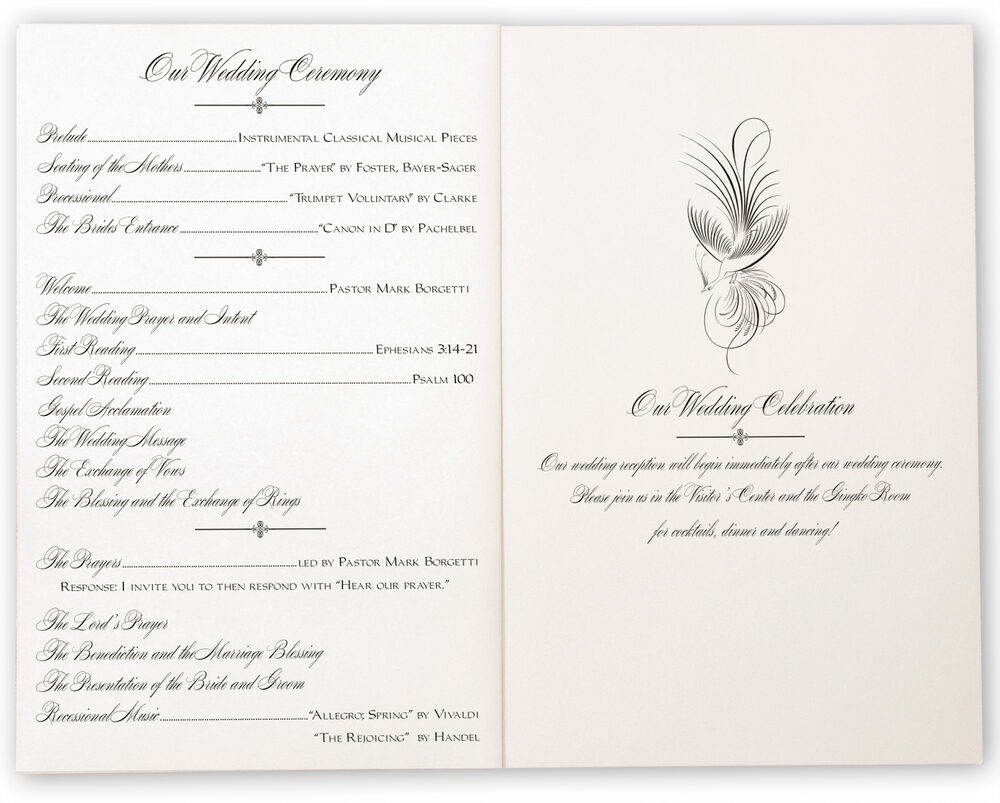 Our Wedding Ceremony
Prelude INSTRUMENTAL CLASSICAL MUSICAL PIECES
Seating of the Mothers "THE PRAYER" BY FOSTER, BAYER-SAGER
Processional "TRUMPET VOLUNTARY" BY CLARKE
The Brides Entrance "CANON IN D" BY PACHELBEL
Welcome PASTOR MARK BORGETTI
The Wedding Prayer and Intent
First Reading EPHESIANS 3:14-21
Second Reading PSALM 100
Gospel Acclamation
The Wedding Message
The Exchange of Vows
The Blessing and the Exchange of Rings
The Prayers LED BY PASTOR MARK BORGETTI
RESPONSE: I INVITE YOU TO THEN RESPOND WITH "HEAR OUR PRAYER."
The Lord's Prayer
The Benediction and the Marriage Blessing
The Presentation of the Bride and Groom
Recessional Music "ALLEGRO; SPRING" BY VIVALDI
"THE REJOICING" BY HANDEL
Our Wedding Celebration
Our wedding reception will begin immediately after our wedding ceremony.
Please join us in the Visitor's Center and the Gingko Room
for cocktails, dinner and dancing!